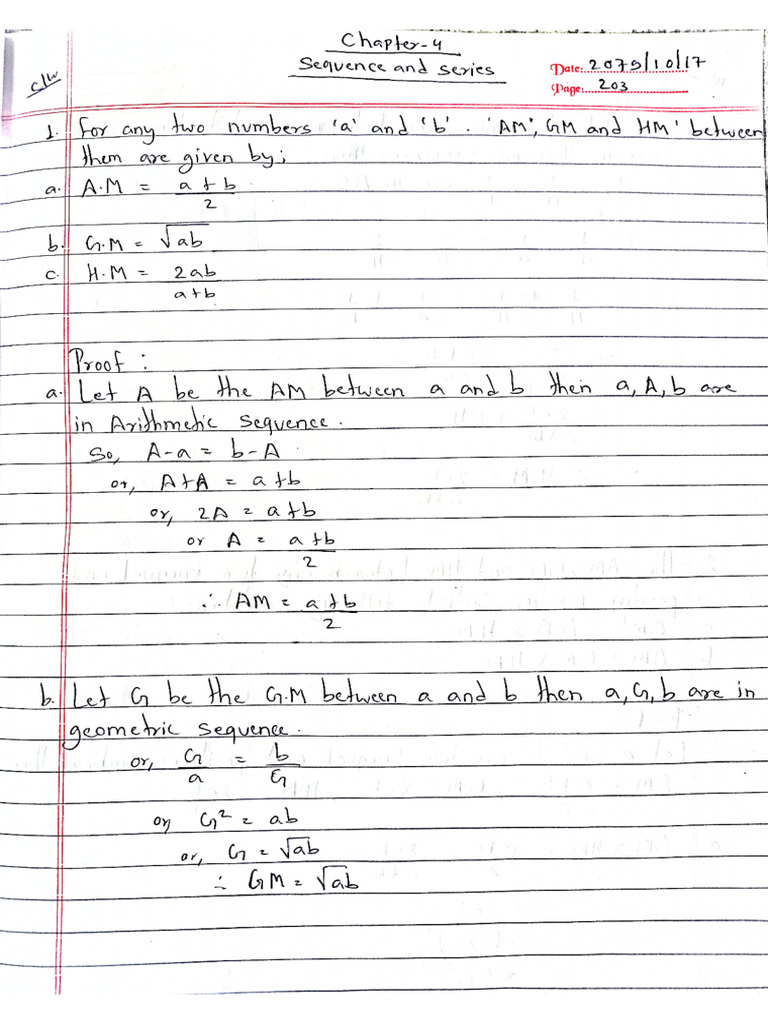 Chapter-4
Sequence and series
Date: 2079/10/17
Page: 203
c/w
1. For any two numbers 'a' and 'b'. 'AM', GM and HM' between
them are given by;
a. A.M = a+b
2
b. G.M = √ab
c. H.M = 2ab
a+b
Proof :
a. Let A be the AM between a and b then a, A, b are
in Arithmetic sequence.
So, A-a = b-A
or, A+A = a+b
or, 2A = a+b
or A = a+b
2
∴ AM = a+b
2
b. Let G be the G.M between a and b then a, G, b are in
geometric sequence.
or, G = b
a G
or, G² = ab
or, G = √ab
∴ GM = √ab